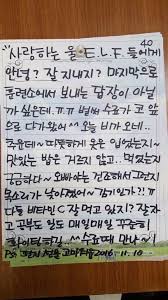 40
"사랑하는 울 E.L.F 들에게
안녕? 잘 지내지? 마지막으로
훈련소에서 보내는 답장이 아닐
까 싶은데.ㅠㅠ 벌써 수료가 코 앞
으로 다가왔어 ^^ 오늘 비가 오네..
추운데~ 따뜻하게 옷은 입었는지~
맛있는 밥은 거르지 않고.. 먹었는지
궁금하다~ 와빠는 건조해서 그런지
목소리가 낮아졌어~ 감기인가??
다들 비타민C 잘 먹고 있지? 잘자
고 공부도 일도 매일매일 꾸준히
화이팅하길 ^^ 수료때 만나~
P.S 편지 선물 고마워들 2016. 11. 10